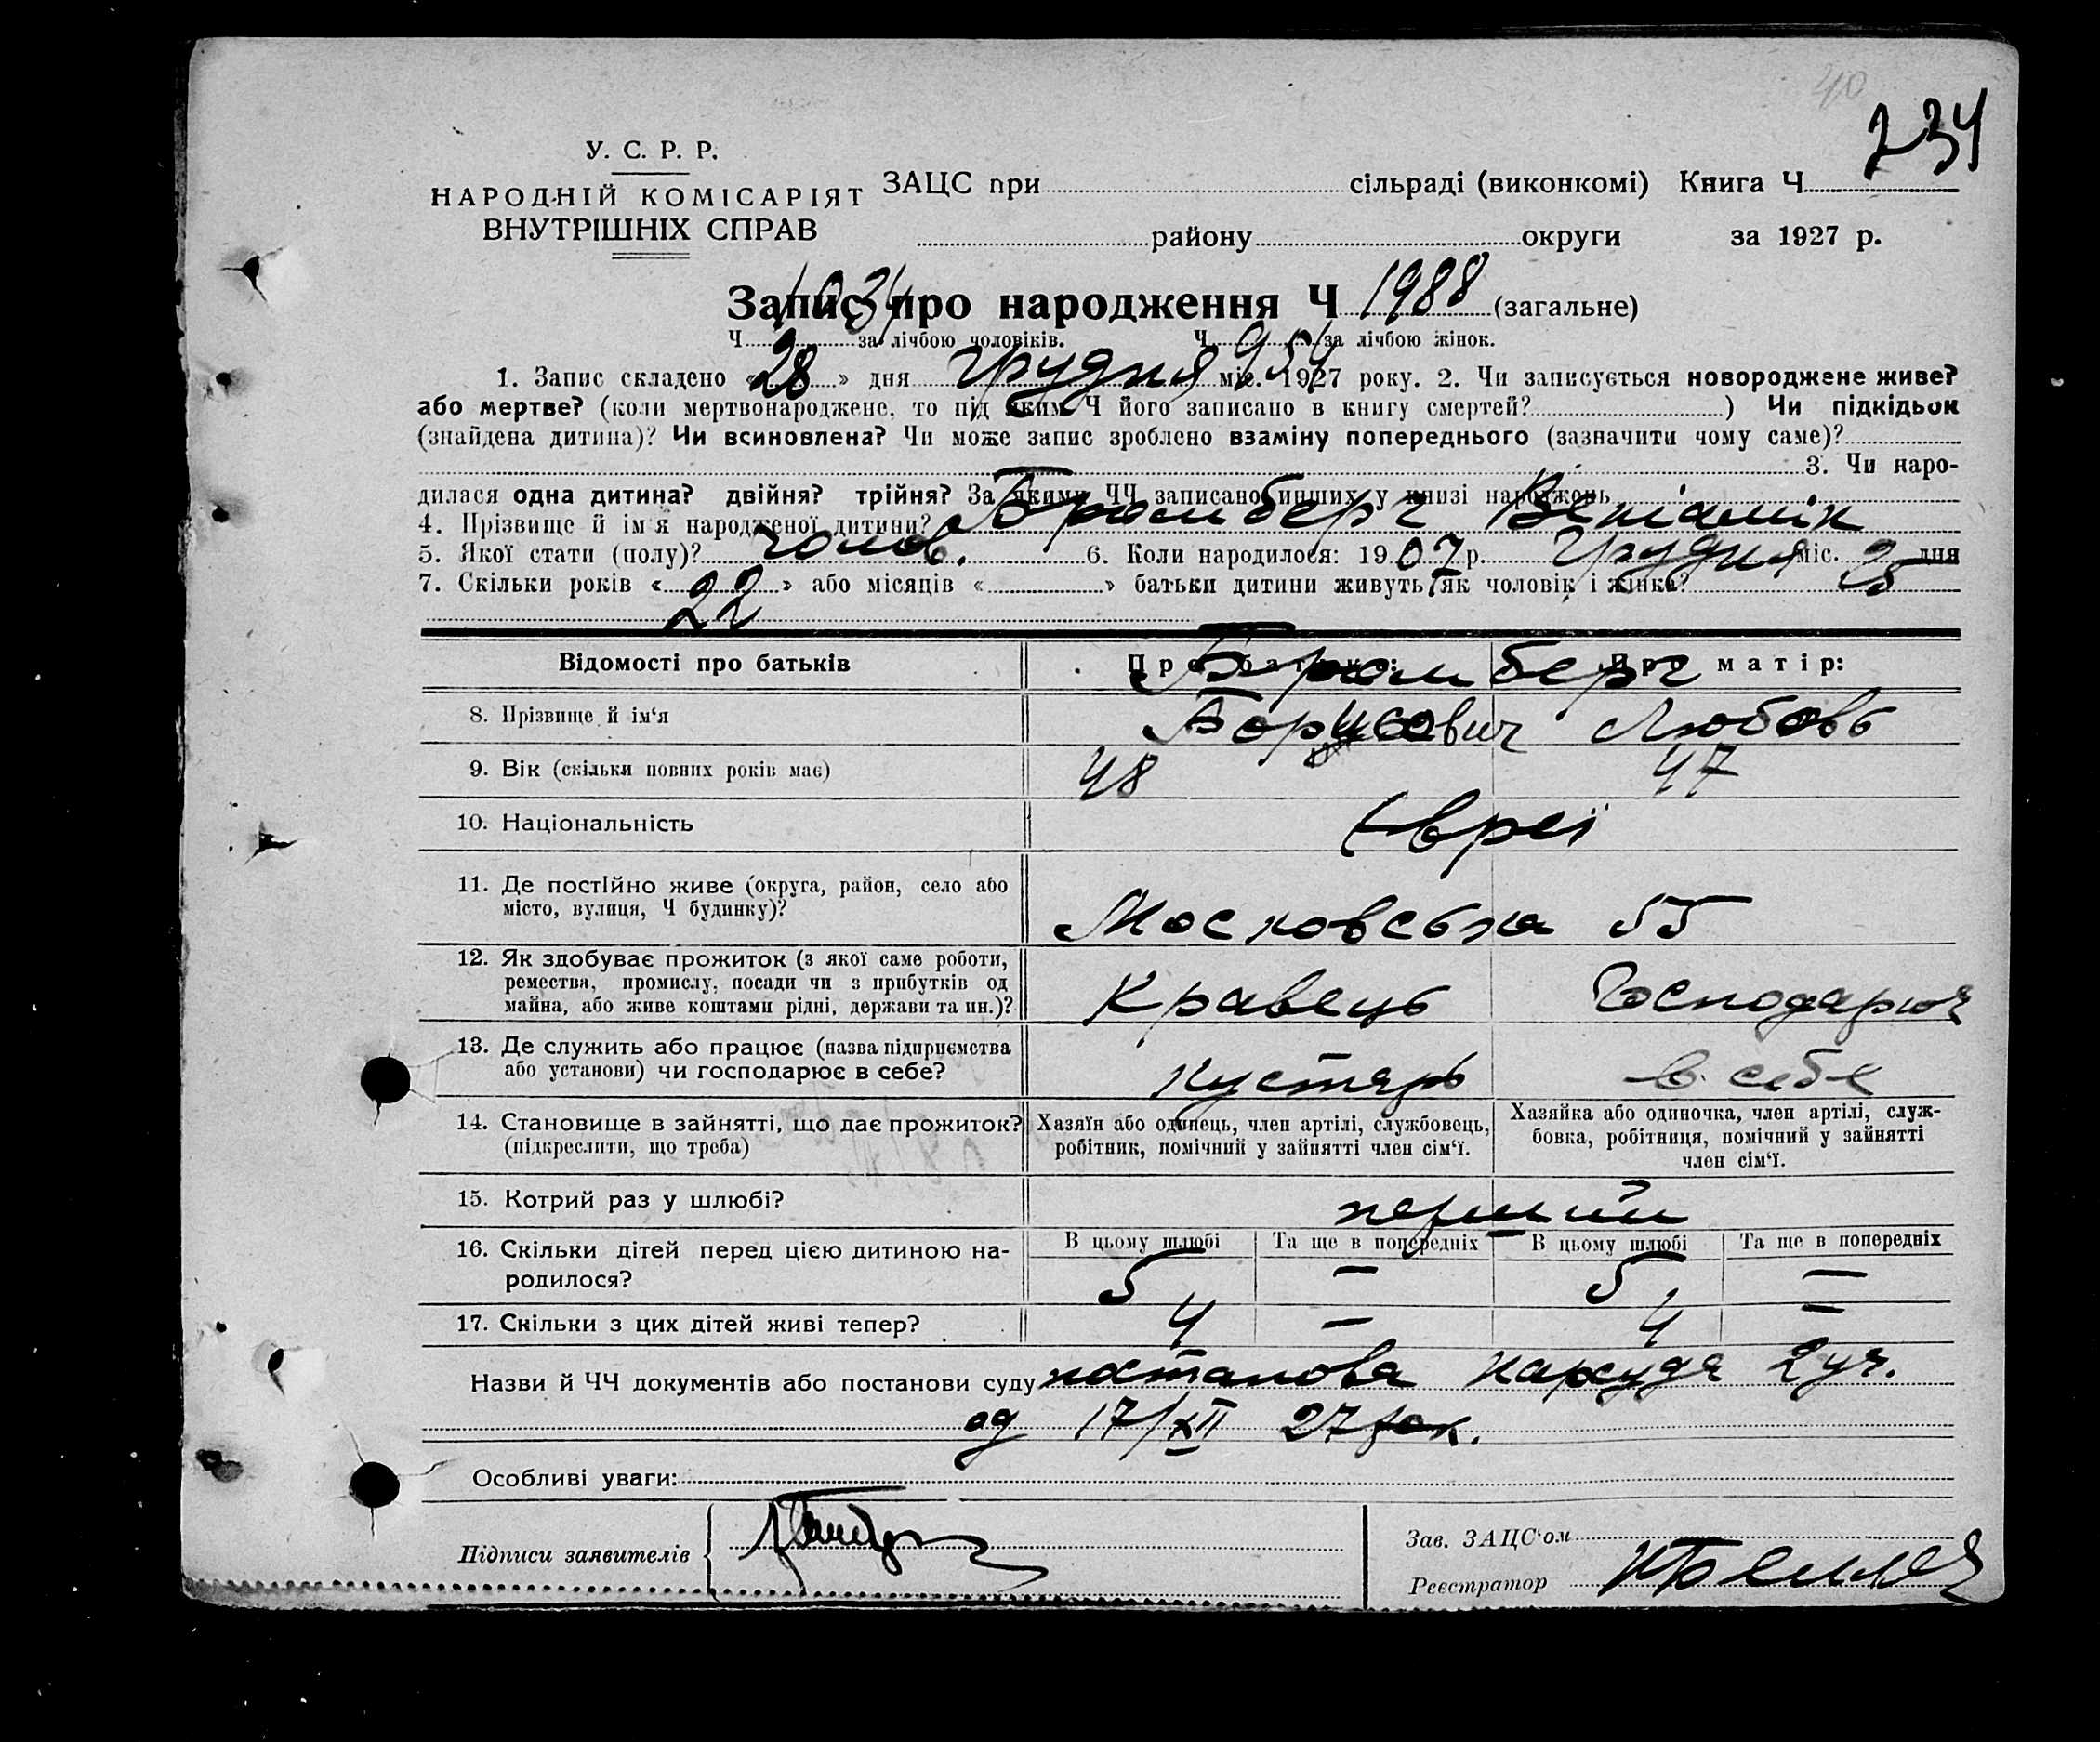 40
234
У. С. Р. Р.
НАРОДНІЙ КОМІСАРІЯТ
ВНУТРІШНІХ СПРАВ
ЗАЦС при сільраді (виконкомі) Книга Ч.
району округи за 1927 р.
Запис про народження Ч 1988 (загальне)
Ч 1034 за лічбою чоловіків. Ч 954 за лічбою жінок.
1. Запис складено «28» дня грудня міс. 1927 року. 2. Чи записується новороджене живе?
або мертве? (коли мертвонароджене, то під яким Ч його записано в книгу смертей? ) Чи підкідьок
(знайдена дитина)? Чи всиновлена? Чи може запис зроблено взаміну попереднього (зазначити чому саме)?
3. Чи наро-
дилася одна дитина? двійня? трійня? За якими ЧЧ записано инших у книзі народжень
4. Прізвище й ім'я народженої дитини? Бромберг Веніамін
5. Якої стати (полу)? чолов. 6. Коли народилося: 1907 р. Грудня міс. 25 дня
7. Скільки років «22» або місяців « » батьки дитини живуть як чоловік і жінка?
Відомості про батьків Про батька: Про матір:
Бромберг
8. Прізвище й ім'я Борисович Любовь
9. Вік (скільки повних років має) 48 47
10. Національність Євреї
11. Де постІйно живе (округа, район, село або
місто, вулиця, Ч будинку)? Московська 55
12. Як здобуває прожиток (з якої саме роботи,
ремества, промислу, посади чи з прибутків од
майна, або живе коштами рідні, держави та ин.)? Кравець Господарює
13. Де служить або працює (назва підприємства
або установи) чи господарює в себе? кустарь в себе
14. Становище в зайнятті, що дає прожиток?
(підкреслити, що треба)
Хазяїн або одинець, член артілі, службовець,
робітник, помічний у зайнятті член сім'ї.
Хазяйка або одиночка, член артілі, служ-
бовка, робітниця, помічний у зайнятті
член сім'ї.
15. Котрий раз у шлюбі? перший
16. Скільки дітей перед цією дитиною на-
родилося?
В цьому шлюбі Та ще в попередніх В цьому шлюбі Та ще в попередніх
5 — 5 —
17. Скільки з цих дітей живі тепер? 4 — 4 —
Назви й ЧЧ документів або постанови суду постанова нарсуда 2 уч.
од 17/XII 27
Особливі уваги:
Підписи заявителів
Зав. ЗАЦС'ом
Реєстратор